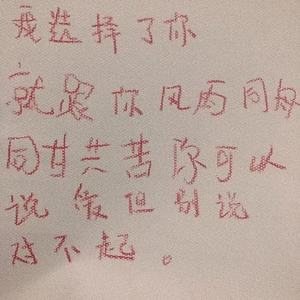 我选择了你
就跟你风雨同舟
同甘共苦你可以
说 散但别说
对不起。